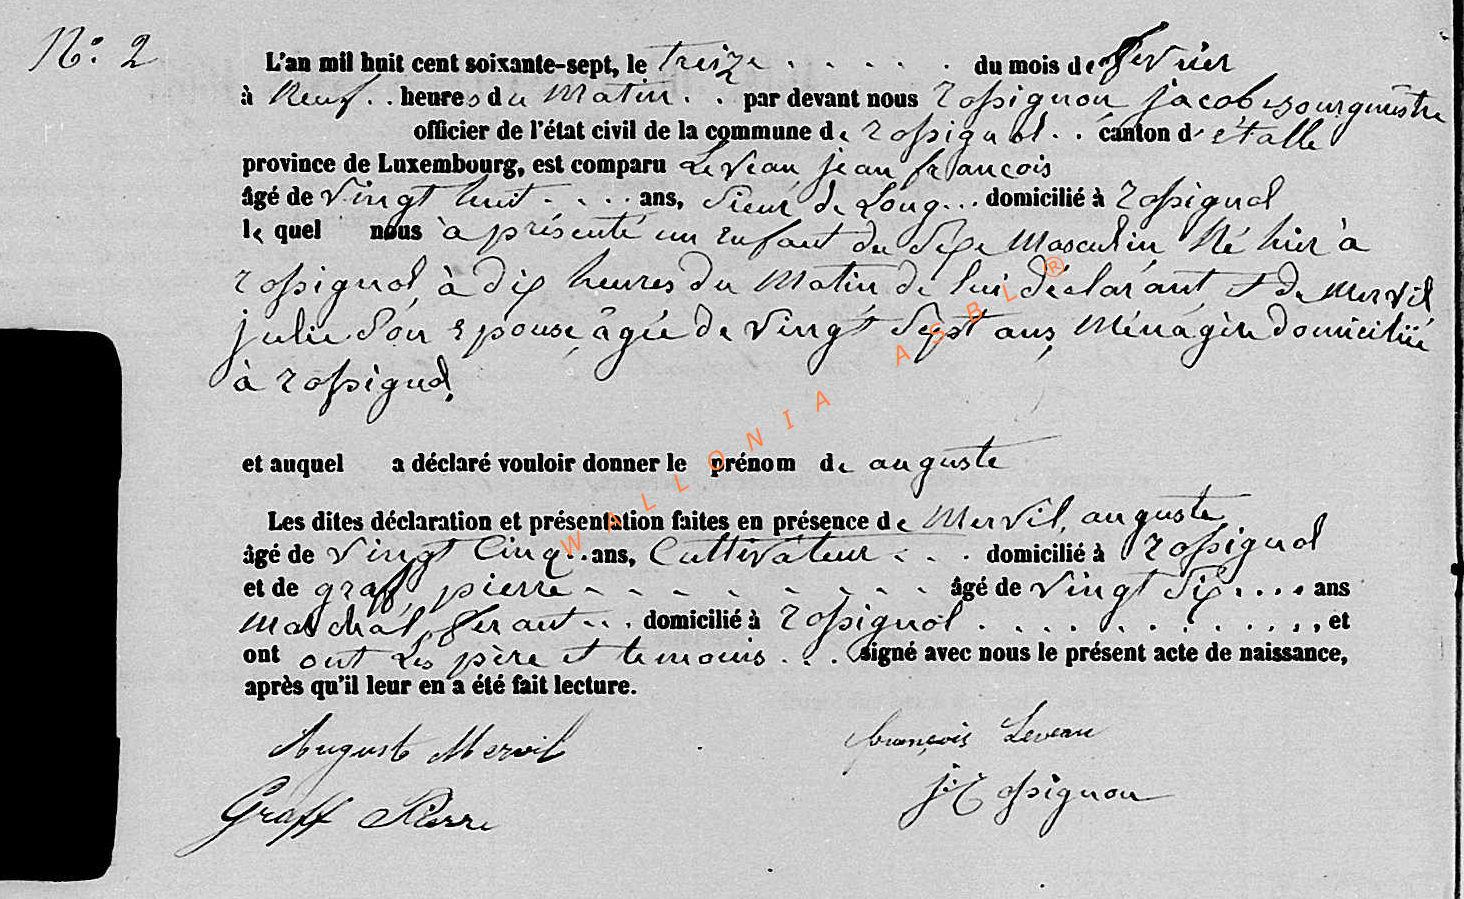 N°: 2
L'an mil huit cent soixante-sept, le treize . . . . . . du mois de fevrier
à Neuf . . heures du Matin . . par devant nous rossignon, jacob, Bourgmestre
officier de l'état civil de la commune de rossignol . . canton d'étalle
province de Luxembourg, est comparu Leveau, jean francois
âgé de vingt huit . . . . ans, Sieur de Long . . . domicilié à rossignol
le quel nous à présenté un enfant du Sexe Masculin, Né hier à
rossignol, à dix heures du Matin, de lui déclarant, et de Mervil
julie Son Epouse, âgée de vingt Sept ans, Ménagère domiciliée
à rossignol,
et auquel a déclaré vouloir donner le prénom de auguste
Les dites déclaration et présentation faites en présence de Mervil, auguste
âgé de vingt Cinq . . ans, Cultivateur . . . domicilié à rossignol
et de graff, pierre - - - - - - - - - âgé de vingt Six . . . . ans
Marchal, ferant . . . domicilié à rossignol . . . . . . . . . . . , et
ont ont Les père et temouis . . . signé avec nous le présent acte de naissance,
après qu'il leur en a été fait lecture.
Auguste Mervil
françois Leveau
j. Rossignon
Graff Pierre
WALLONIA ASBL ®